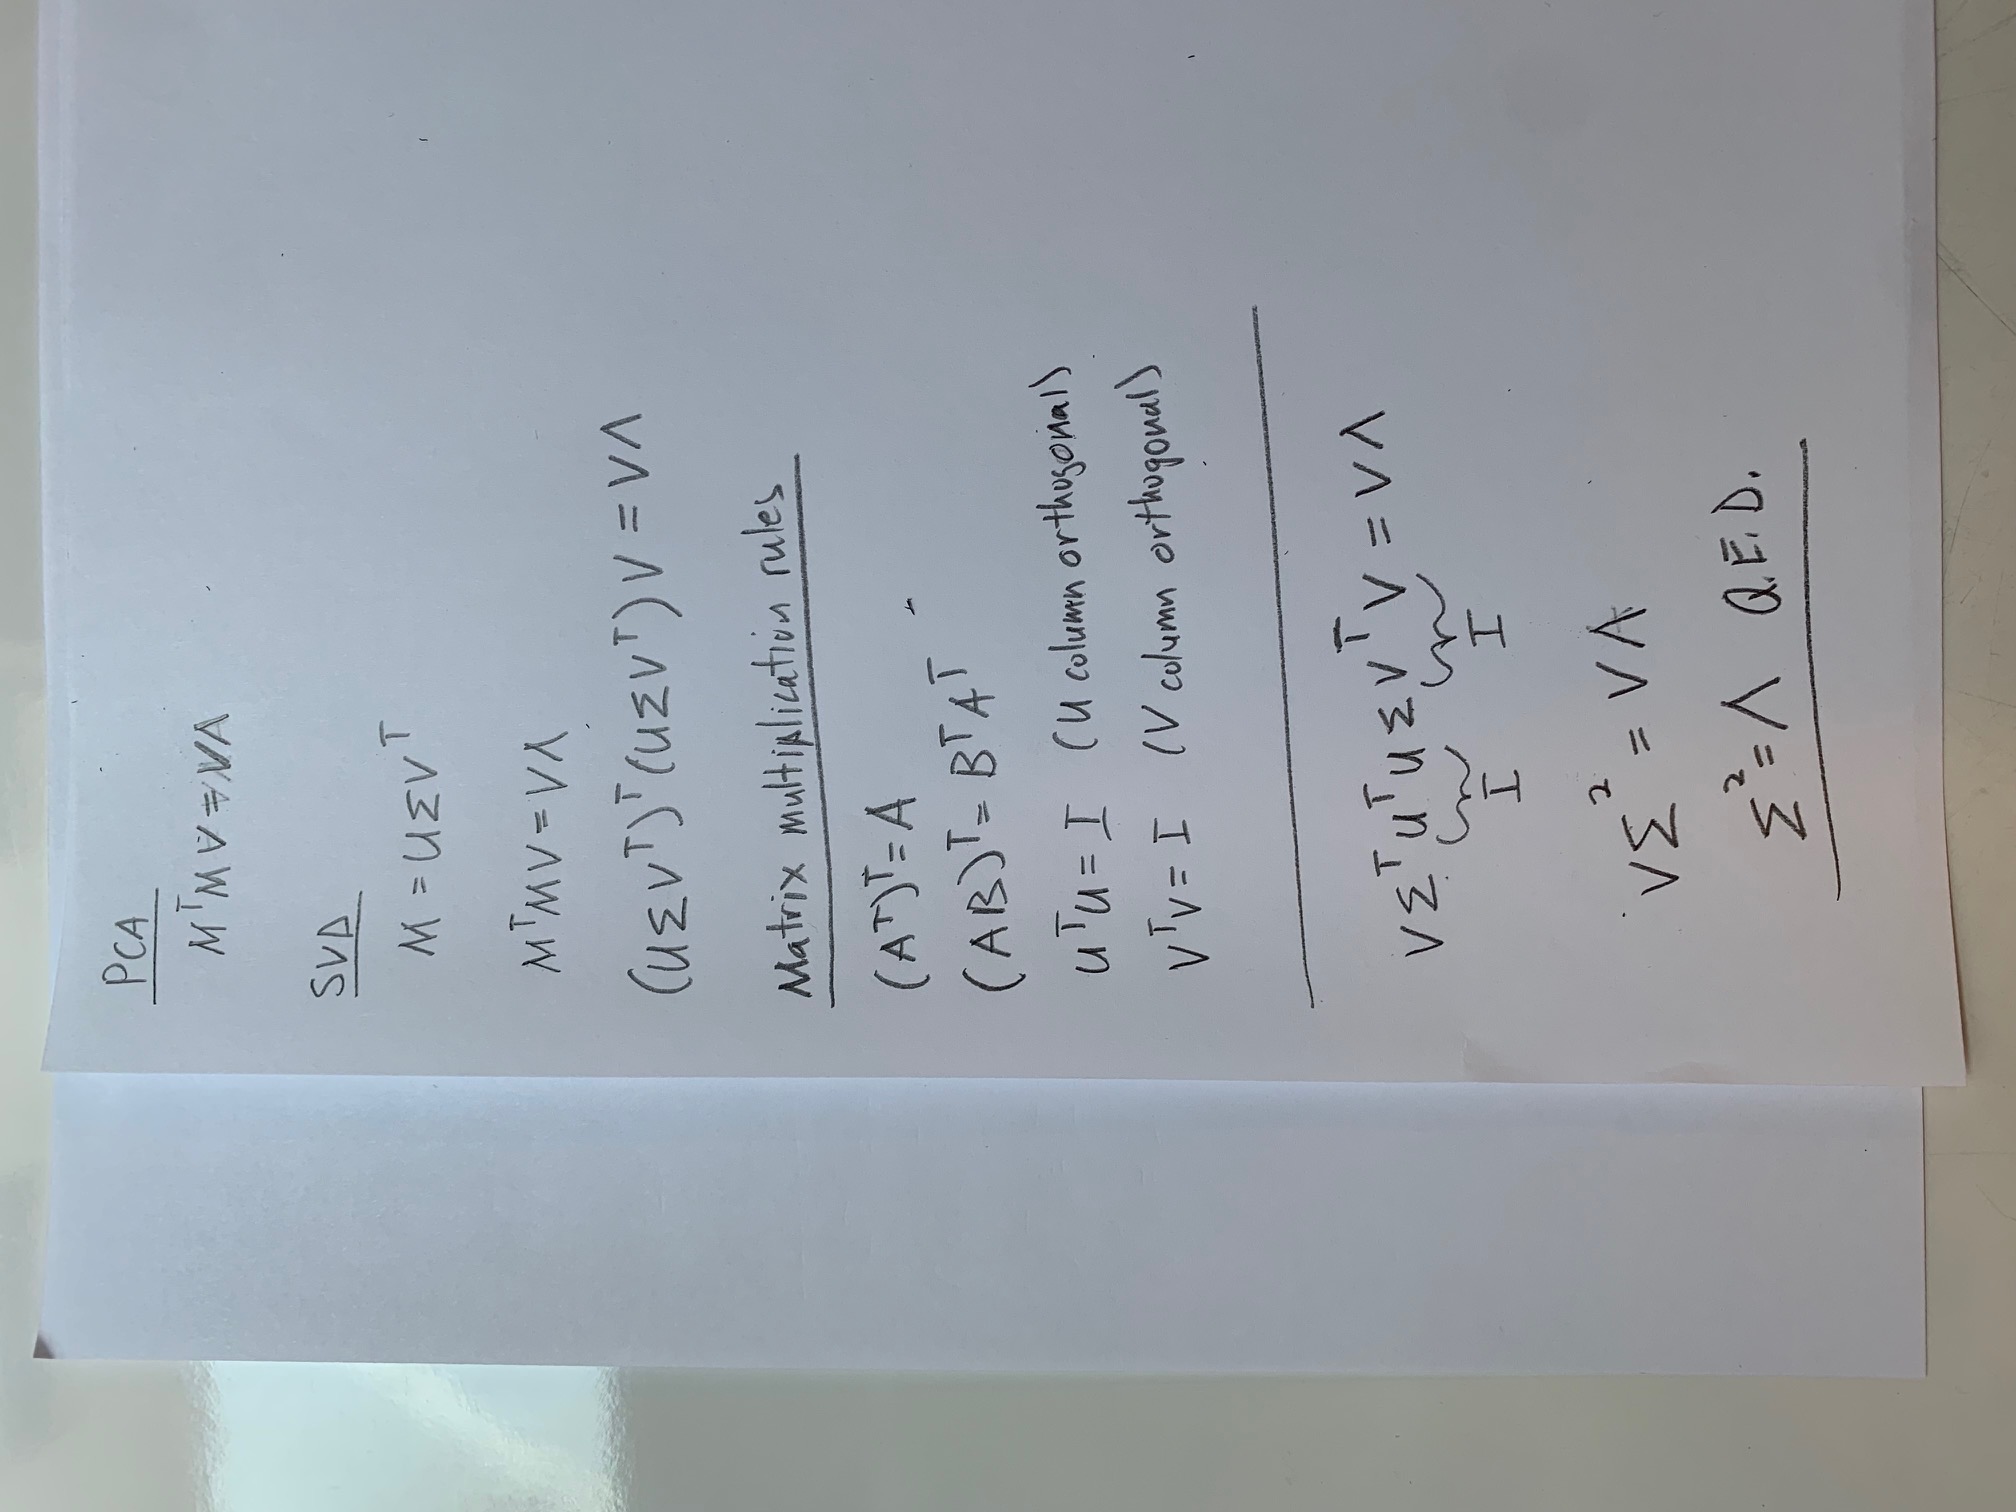 PCA
MᵀMV = VΛ
SVD
M = UΣVᵀ
MᵀMV = VΛ
(UΣVᵀ)ᵀ(UΣVᵀ)V = VΛ
Matrix multiplication rules
(Aᵀ)ᵀ = A
(AB)ᵀ = BᵀAᵀ
UᵀU = I (U column orthogonal)
VᵀV = I (V column orthogonal)
VΣᵀUᵀUΣVᵀV = VΛ
I I
VΣ² = VΛ
Σ² = Λ Q.E.D.